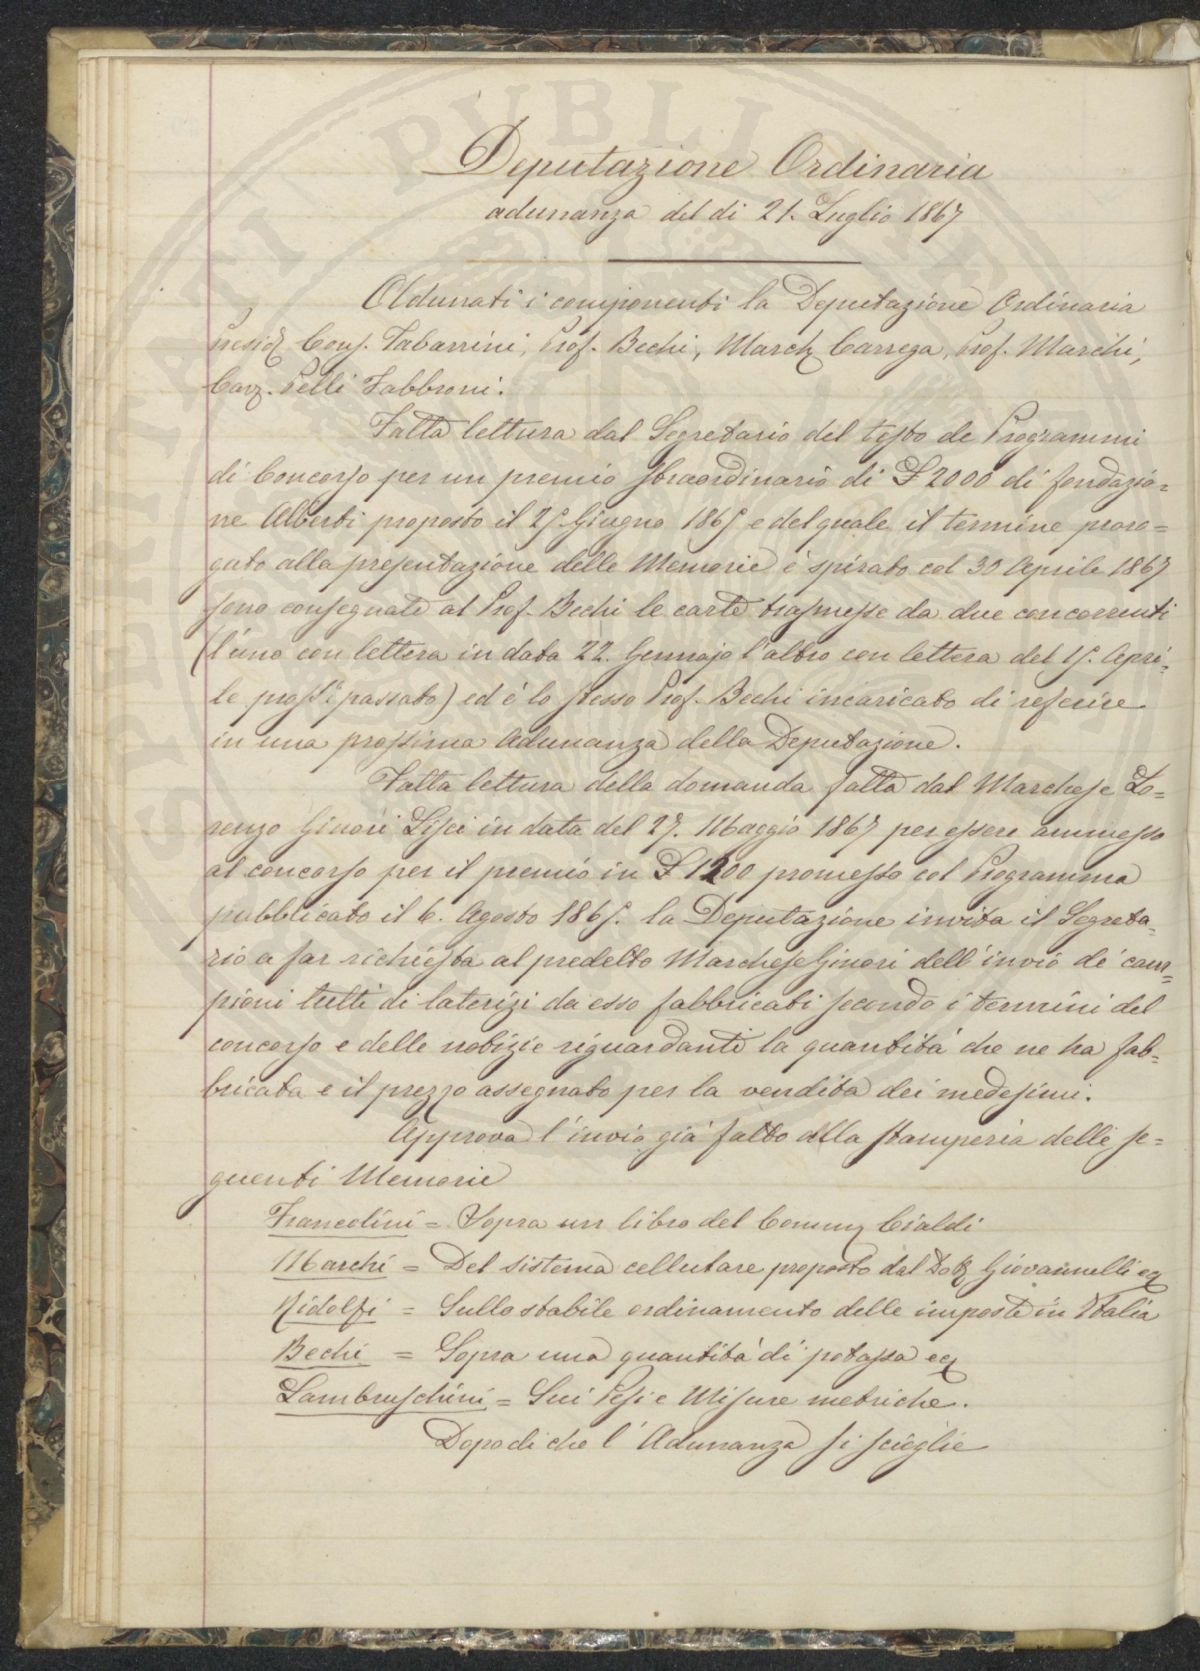 Deputazione Ordinaria
adunanza del dì 21. Luglio 1867
Adunati i componenti la Deputazione Ordinaria
Presid.e Conf. Tabarrini, Prof. Bechi, March.e Carrega, Prof. Marchi,
Cav. Pelli Fabbroni.
Fatta lettura dal Segretario del testo de Programmi
di Concorso per un premio straordinario di £ 2000 di fondazio=
ne Alberti proposto il 25. Giugno 1865 e del quale il termine proro=
gato alla presentazione delle Memorie è spirato col 30 Aprile 1867
sono consegnate al Prof. Bechi le carte trasmesse da due concorrenti
(l'uno con lettera in data 22. Gennajo l'altro con lettera del 15. Apri=
le pross.o passato) ed è lo stesso Prof. Bechi incaricato di referire
in una prossima Adunanza della Deputazione.
Fatta lettura della domanda fatta dal Marchese Lo=
renzo Ginori Lisci in data del 27. Maggio 1867 per essere ammesso
al concorso per il premio in £ 1200 promesso col Programma
pubblicato il 6. Agosto 1865. la Deputazione invita il Segreta=
rio a far richiesta al predetto Marchese Ginori dell'invio di cam=
pioni tutti di laterizi da esso fabbricati secondo i termini del
concorso e delle notizie riguardanti la quantità che ne ha fab=
bricata e il prezzo assegnato per la vendita dei medesimi.
Approva l'invio già fatto alla stamperia delle se=
guenti Memorie
Francolini = Sopra un libro del Comm. Cialdi
Marchi = Del sistema cellulare proposto dal Dott. Giovannelli ec
Ridolfi = Sullo stabile ordinamento delle imposte in Italia
Bechi = Sopra una quantità di potassa ec
Lambruschini = Sui Pesi e Misure metriche.
Dopo di che l'Adunanza si scioglie